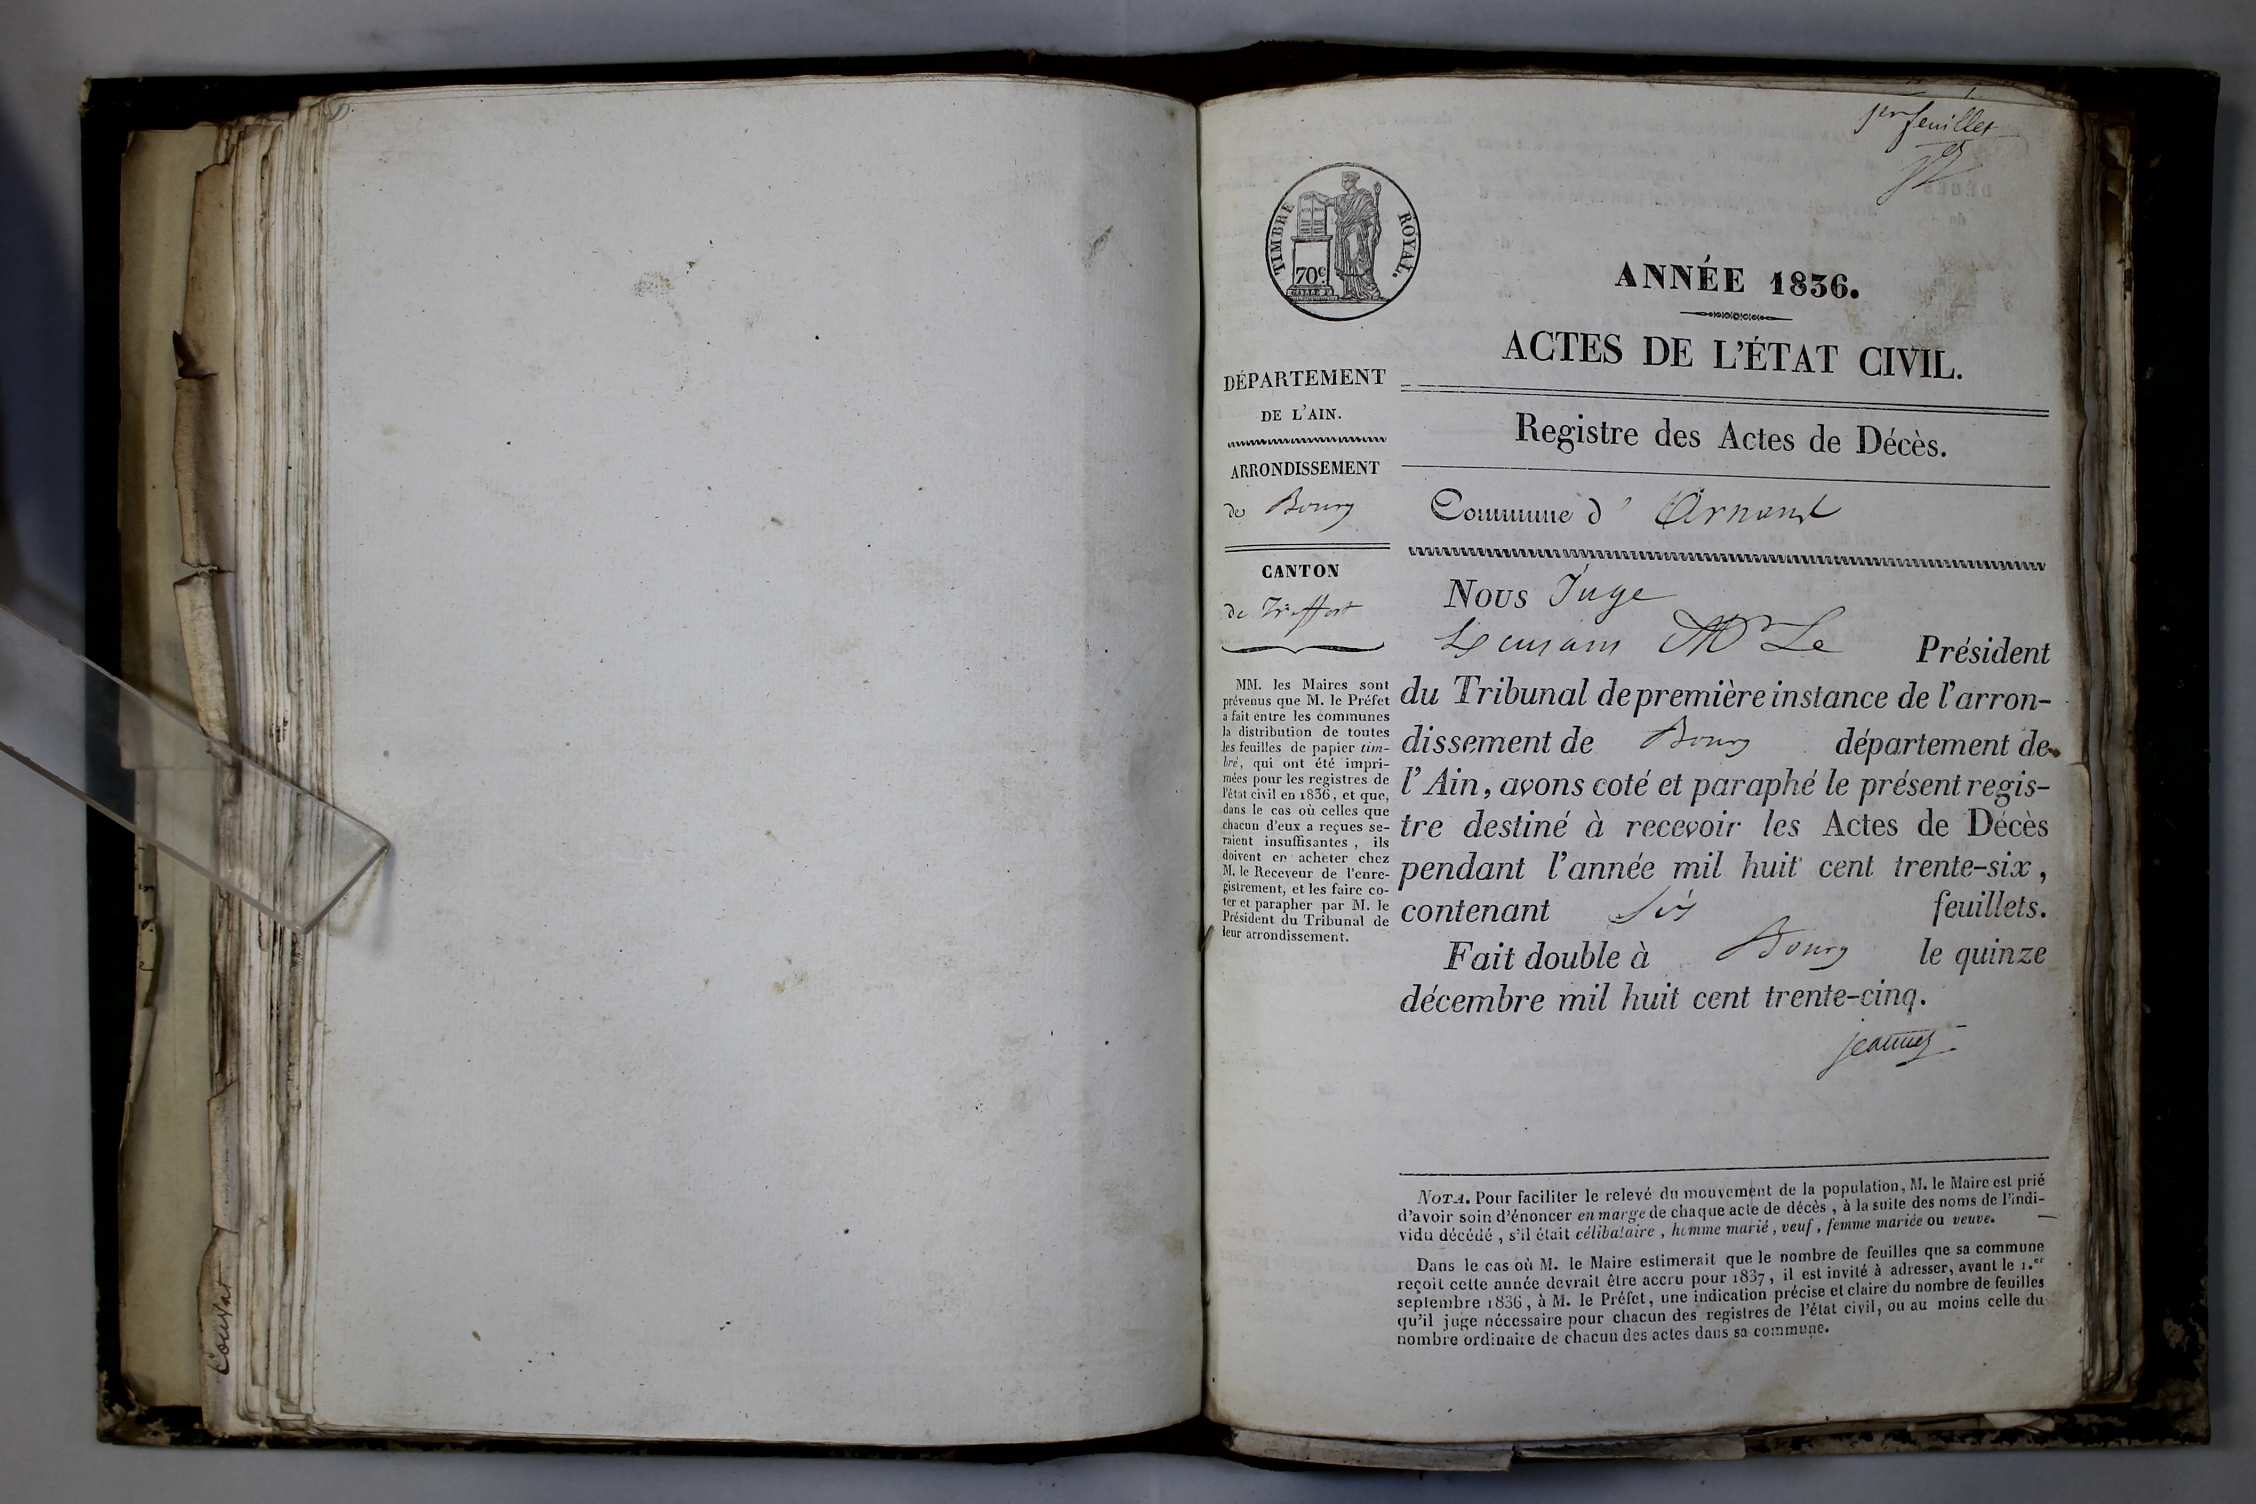 1er feuillet
TIMBRE ROYAL.
70c
ANNÉE 1836.
ACTES DE L'ÉTAT CIVIL.
DÉPARTEMENT
DE L'AIN.
ARRONDISSEMENT
de Bourg
CANTON
de Treffort
MM. les Maires sont
prévenus que M. le Préfet
a fait entre les communes
la distribution de toutes
les feuilles de papier tim-
bré, qui ont été impri-
mées pour les registres de
l'état civil en 1836, et que,
dans le cas où celles que
chacun d'eux a reçues se-
raient insuffisantes, ils
doivent en acheter chez
M. le Receveur de l'enre-
gistrement, et les faire co-
ter et parapher par M. le
Président du Tribunal de
leur arrondissement.
Registre des Actes de Décès.
Commune d'
Nous Juge
Mr Le Président
du Tribunal de première instance de l'arron-
dissement de Bourg département de
l'Ain, avons coté et paraphé le présent regis-
tre destiné à recevoir les Actes de Décès
pendant l'année mil huit cent trente-six,
contenant six feuillets.
Fait double à Bourg le quinze
décembre mil huit cent trente-cinq.
NOTA. Pour faciliter le relevé du mouvement de la population, M. le Maire est prié
d'avoir soin d'énoncer en marge de chaque acte de décès, à la suite des noms de l'indi-
vidu décédé, s'il était célibataire, homme marié, veuf, femme mariée ou veuve.
Dans le cas où M. le Maire estimerait que le nombre de feuilles que sa commune
reçoit cette année devrait être accru pour 1837, il est invité à adresser, avant le 1.er
septembre 1836, à M. le Préfet, une indication précise et claire du nombre de feuilles
qu'il juge nécessaire pour chacun des registres de l'état civil, ou au moins celle du
nombre ordinaire de chacun des actes dans sa commune.